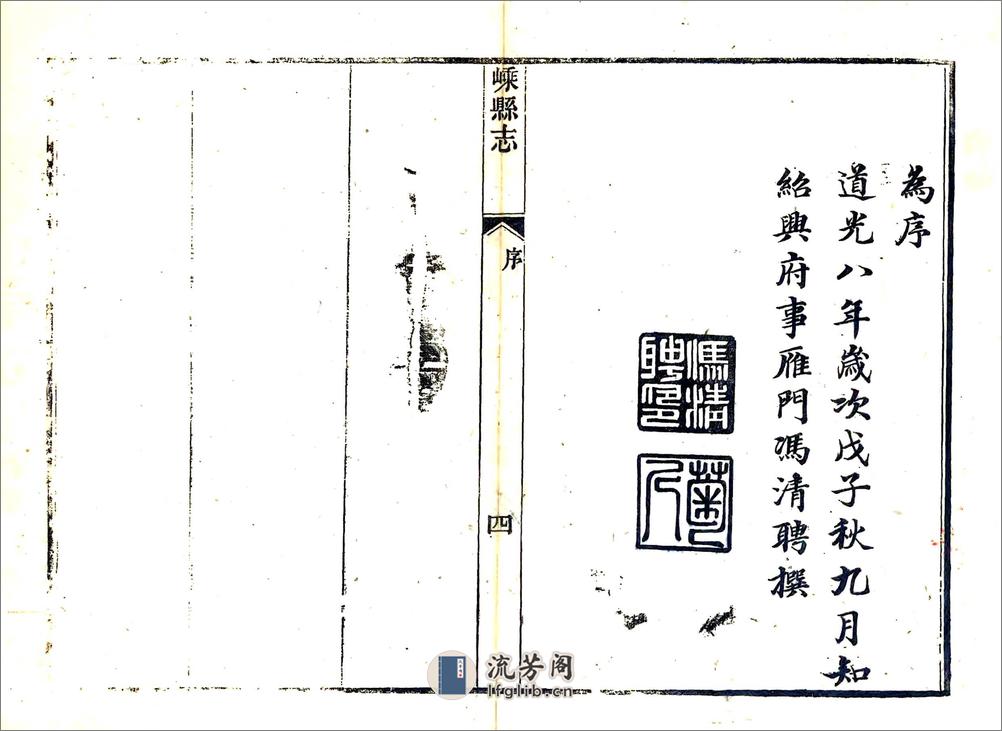 為序
道光八年歲次戊子秋九月知
紹興府事雁門馮清聘撰
馮清
聘印
菊人
嵊縣志
序
四
流芳阁
lfglib.cn